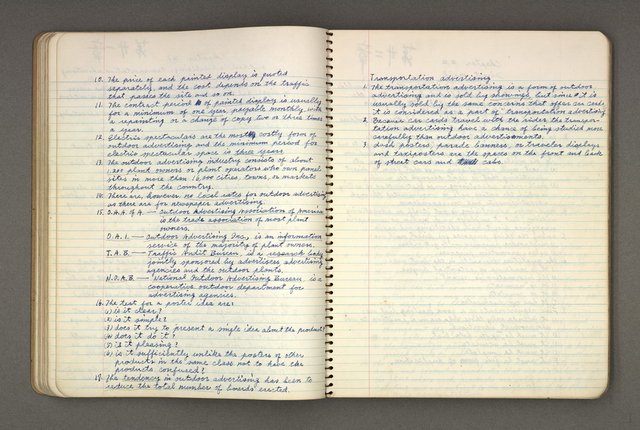 10. The price of each painted display is quoted
separately, and the cost depends on the traffic
that passes the site and so on.
11. The contract period of painted display is usually
for a minimum of one year payable monthly, with
a repainting or a change of copy two or three times
a year.
12. Electric spectaculars are the most costly form of
outdoor advertising and the minimum period for
electric spectacular space is three years.
13. The outdoor advertising industry consists of about
plant owners or plant operators who own panel
sites in more than cities, towns, or markets
throughout the country.
14. There are, however no local rates for outdoor advertising
as there are for newspaper advertising.
15. O.A.A. of A. — Outdoor Advertising Association of America
is the trade association of most plant
owners.
O.A.I. — Outdoor Advertising Inc., is an information
service of the majority of plant owners.
T.A.B. — Traffic Audit Bureau, is a research body
jointly sponsored by advertisers advertising
agencies and the outdoor plants.
N.O.A.B. — National Outdoor Advertising Bureau is a
cooperative outdoor department for
advertising agencies.
16. The test for a poster idea are:
(1) is it clear?
(2) is it simple?
(3) does it try to present a single idea about the product?
(4) does it do it?
(5) is it pleasing?
(6) is it sufficiently unlike the posters of other
products in the same class not to have the
products confused?
17. The tendency in outdoor advertising has been to
reduce the total number of boards erected.
Transportation advertising
1. The transportation advertising is a form of outdoor
advertising and is sold by showings, but since it is
usually sold by the same concerns that offer car cards,
it is considered as a part of transportation advertising
2. Because car cards travel with the rider the transpor-
tation advertising have a chance of being studied more
carefully than outdoor advertisements.
3. dash posters, parade banners or traveler displays
and taxiposters are the spaces on the front and back
of street cars and cabs.